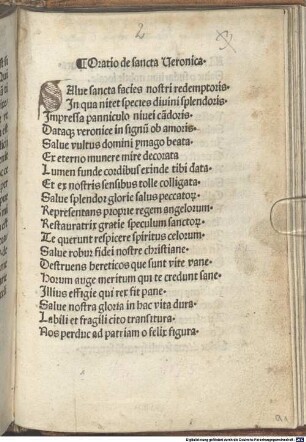 2
¶Oratio de sancta Veronica.
Salve sancta facies nostri redemptoris.
In qua nitet species divini splendoris.
Impressa panniculo nivei cādoris.
Dataq; veronice in signū ob amoris.
Salve vultus domini ymago beata.
Ex eterno munere mire decorata
Lumen funde cordibus exinde tibi data.
Et ex nostris sensibus tolle colligata.
Salve splendor glorie salus peccatoꝝ.
Representans proprie regem angelorum.
Restauratrix gratie speculum sanctoꝝ.
Te querunt respicere spiritus celorum.
Salve robur fidei nostre christiane.
Destruens hereticos que sunt vite vane.
Horum auge meritum qui te credunt sane.
Illius effigie qui rex fit pane.
Salve nostra gloria in hac vita dura.
Labili et fragili cito transitura.
Nos perduc ad patriam o felix figura.